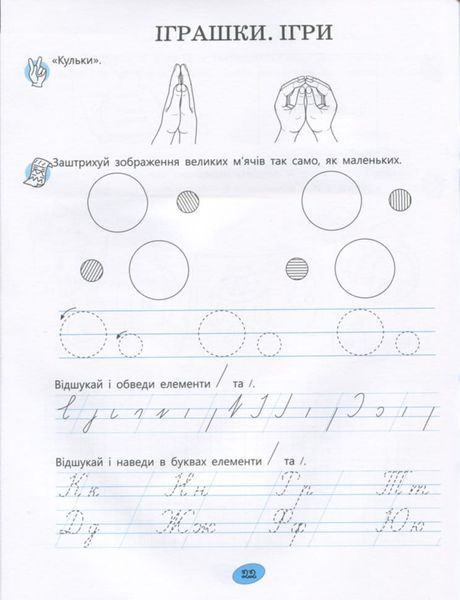 ІГРАШКИ. ІГРИ
«Кульки».
Заштрихуй зображення великих м'ячів так само, як маленьких.
Відшукай і обведи елементи / та /.
Відшукай і наведи в буквах елементи / та /.
Кк Нн Рр Тт
Дд Жж Фф Юю
22